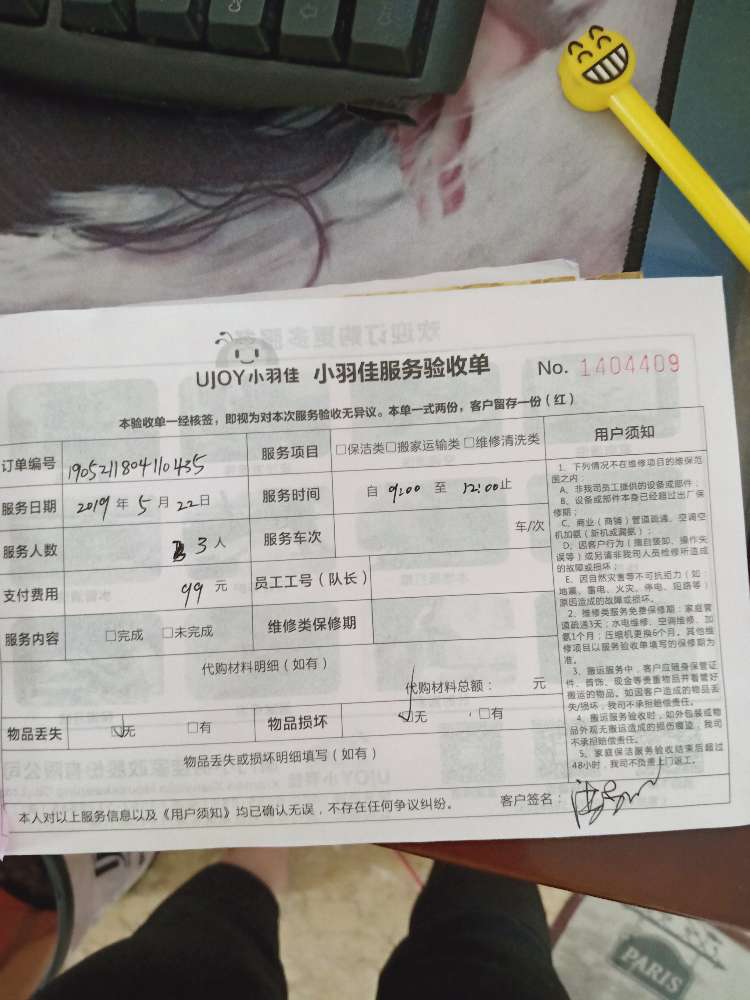 UJOY小羽佳 小羽佳服务验收单 No. 1404409
本验收单一经核签，即视为对本次服务验收无异议。本单一式两份，客户留存一份（红）
订单编号 1905211804110435 服务项目 □保洁类□搬家运输类□维修清洗类
服务日期 2019 年 5 月 22日 服务时间 自 9:00 至 12:00止
服务人数 3 人 服务车次 车/次
支付费用 99 元 员工工号（队长）
服务内容 □完成 □未完成 维修类保修期
代购材料明细（如有）
代购材料总额： 元
物品丢失 □无 □有 物品损坏 □无 □有
物品丢失或损坏明细填写（如有）
本人对以上服务信息以及《用户须知》均已确认无误，不存在任何争议纠纷。 客户签名：
用户须知
1、下列情况不在维修项目的维保范
围之内：
A、非我司员工提供的设备或部件；
B、设备或部件本身已经超过出厂保
修期；
C、商业（商铺）管道疏通、空调空
机加氨（新机或漏氨）；
D、因客户行为（擅自装卸、操作失
误等）或另请非我司人员检修所造成
的故障或损坏；
E、因自然灾害等不可抗拒力（如：
地震、雷电、火灾、停电、短路等）
原因造成的故障或损坏。
2、维修类服务免费保修期：家庭管
道疏通3天；水电维修、空调维修、加
氨1个月；压缩机更换6个月。其他维
修项目以服务验收单填写的保修期为
准。
3、搬运服务中，客户应随身保管证
件、首饰、现金等贵重物品并看管好
搬运的物品。如因客户造成的物品丢
失/损坏，我司不承担赔偿责任。
4、搬运服务验收时，如外包装或物
品外观无搬运造成的损伤痕迹，我司
不承担赔偿责任。
5、家庭保洁服务验收结束后超过
48小时，我司不负责上门返工。
PARIS